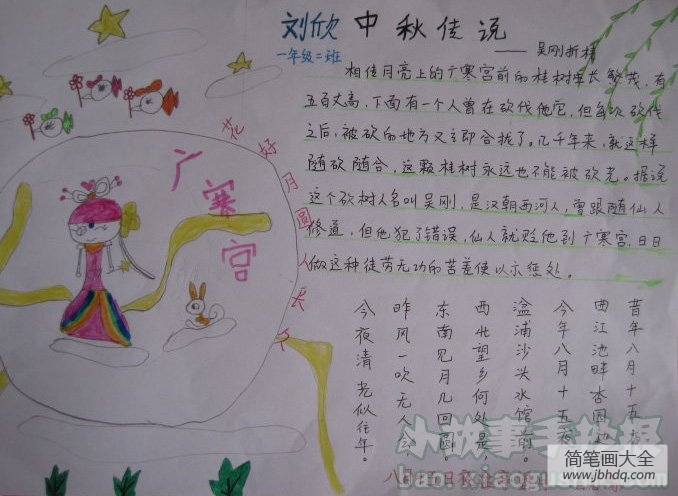 刘欣 中秋传说
一年级二班
——吴刚折桂
相传月亮上的广寒宫前的桂树生长繁茂,有
五百丈高,下面有一个人曾在砍伐他它,但每次砍伐
之后,被砍的地方又立即合拢了。几千年来,就这样
随砍随合,这颗桂树永远也不能被砍光。据说
这个砍树人名叫吴刚,是汉朝西河人,曾跟随仙人
修道,但他犯了错误,仙人就贬他到广寒宫,日日
做这种徒劳无功的苦差使以示惩处。
花好月圆人长久
广寒宫
昔年八月十五夜
曲江池畔杏园边
今年八月十五夜
湓浦沙头水馆前。
西北望乡何处是
东南见月几回圆。
昨风一吹无人会
今夜清光似往年。
八月十五日夜
小故事手抄报
bao.xiaogushi
简笔画大全
www.jbhdq.com